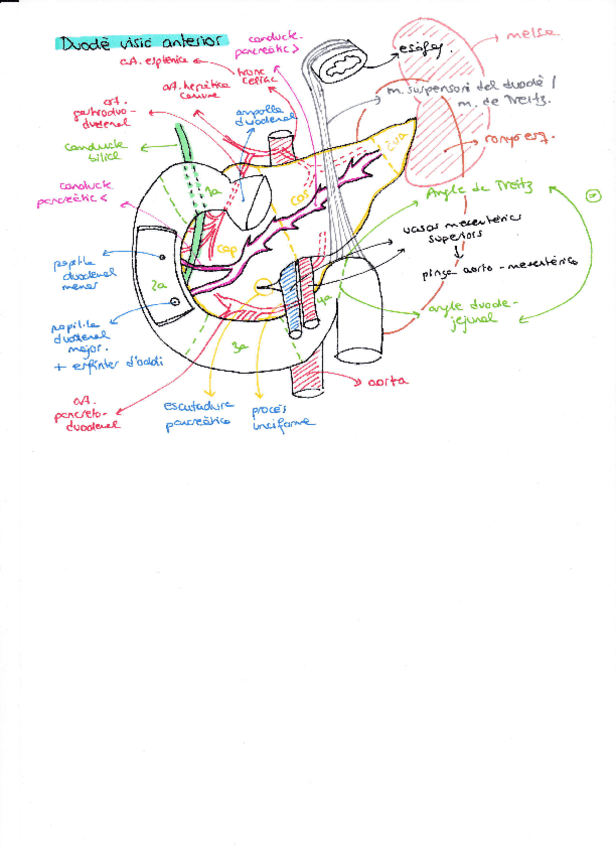 Duodè visió anterior
conducte
pancreàtic >
a.A. esplènica
tronc
celíac
a.A. hepàtica
comuna
art.
gastroduo-
duodenal
ampolla
duodenal
esòfag.
melsa
m. suspensori del duodè /
m. de Treitz.
ronyó esq.
conducte
biliar
conducte
pancreàtic <
1a
cos
cua
cap
Angle de Treitz
vasos mesentèrics
superiors
pinça aorto-mesentèrica
papil·la
duodenal
menor
2a
4a
angle duode-
jejunal
papil·la
duodenal
major.
+ esfínter d'oddi
3a
aorta
a.A.
pancreto-
duodenal
escotadura
pancreàtica
procés
unciforme